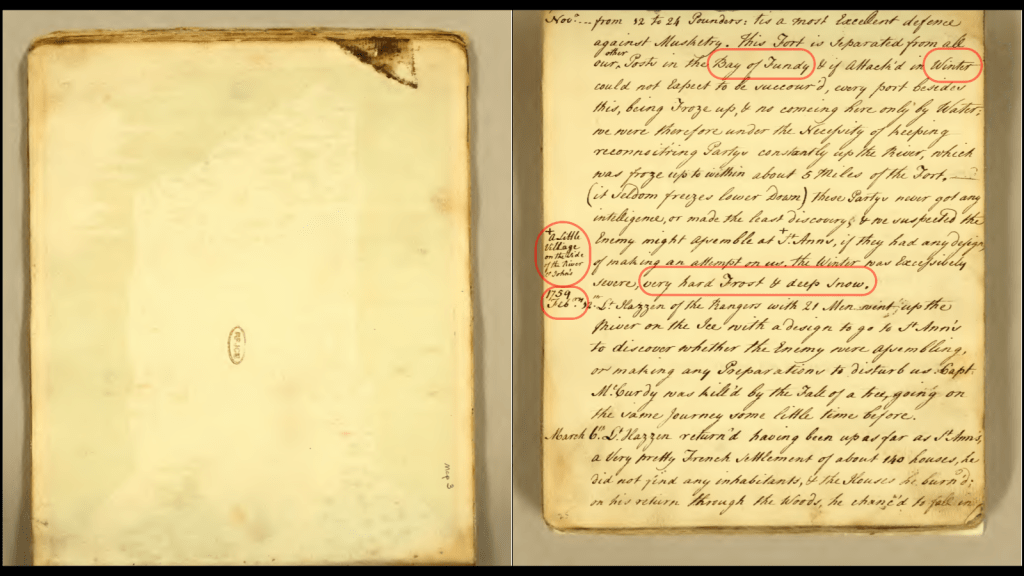 Novr. .... from 12 to 24 Pounders: tis a most Excellent defence
against Musketry. this Fort is Separated from all
our other Posts in the Bay of Fundy & if Attack'd in Winter
could not Expect to be succour'd, every port besides
this, being Froze up, & no comeing here only by Water,
we were therefore under the Necessity of keeping
reconnoitring Partys constantly up the River, which
was froze up to within about 5 Miles of the Fort.
(it Seldom freezes lower Down) these Partys never got any
intelligence, or made the least discovery; & we suspected the
Enemy might assemble at + St. Ann's, if they had any design
of making an attempt on us. the Winter was Excessively
severe, very hard Frost & deep Snow.
+ a Little
Village
on the Side
of the River
St John's
1759
Febry. 12th. Lt. Hazzen of the Rangers with 21 Men went up the
River on the Ice with a design to go to St Ann's
to discover whether the Enemy were assembling,
or making any Preparations to disturb us. Capt.
McCurdy was kill'd by the Fale of a tree, going on
the same Journey some little time before.
March 6th. Lt. Hazzen return'd having been up as far as St. Ann's,
a Very pretty French Settlement of about 140 houses, he
did not find any inhabitants, & the Houses he burn'd:
in his return through the Woods, he chanc'd to fall in